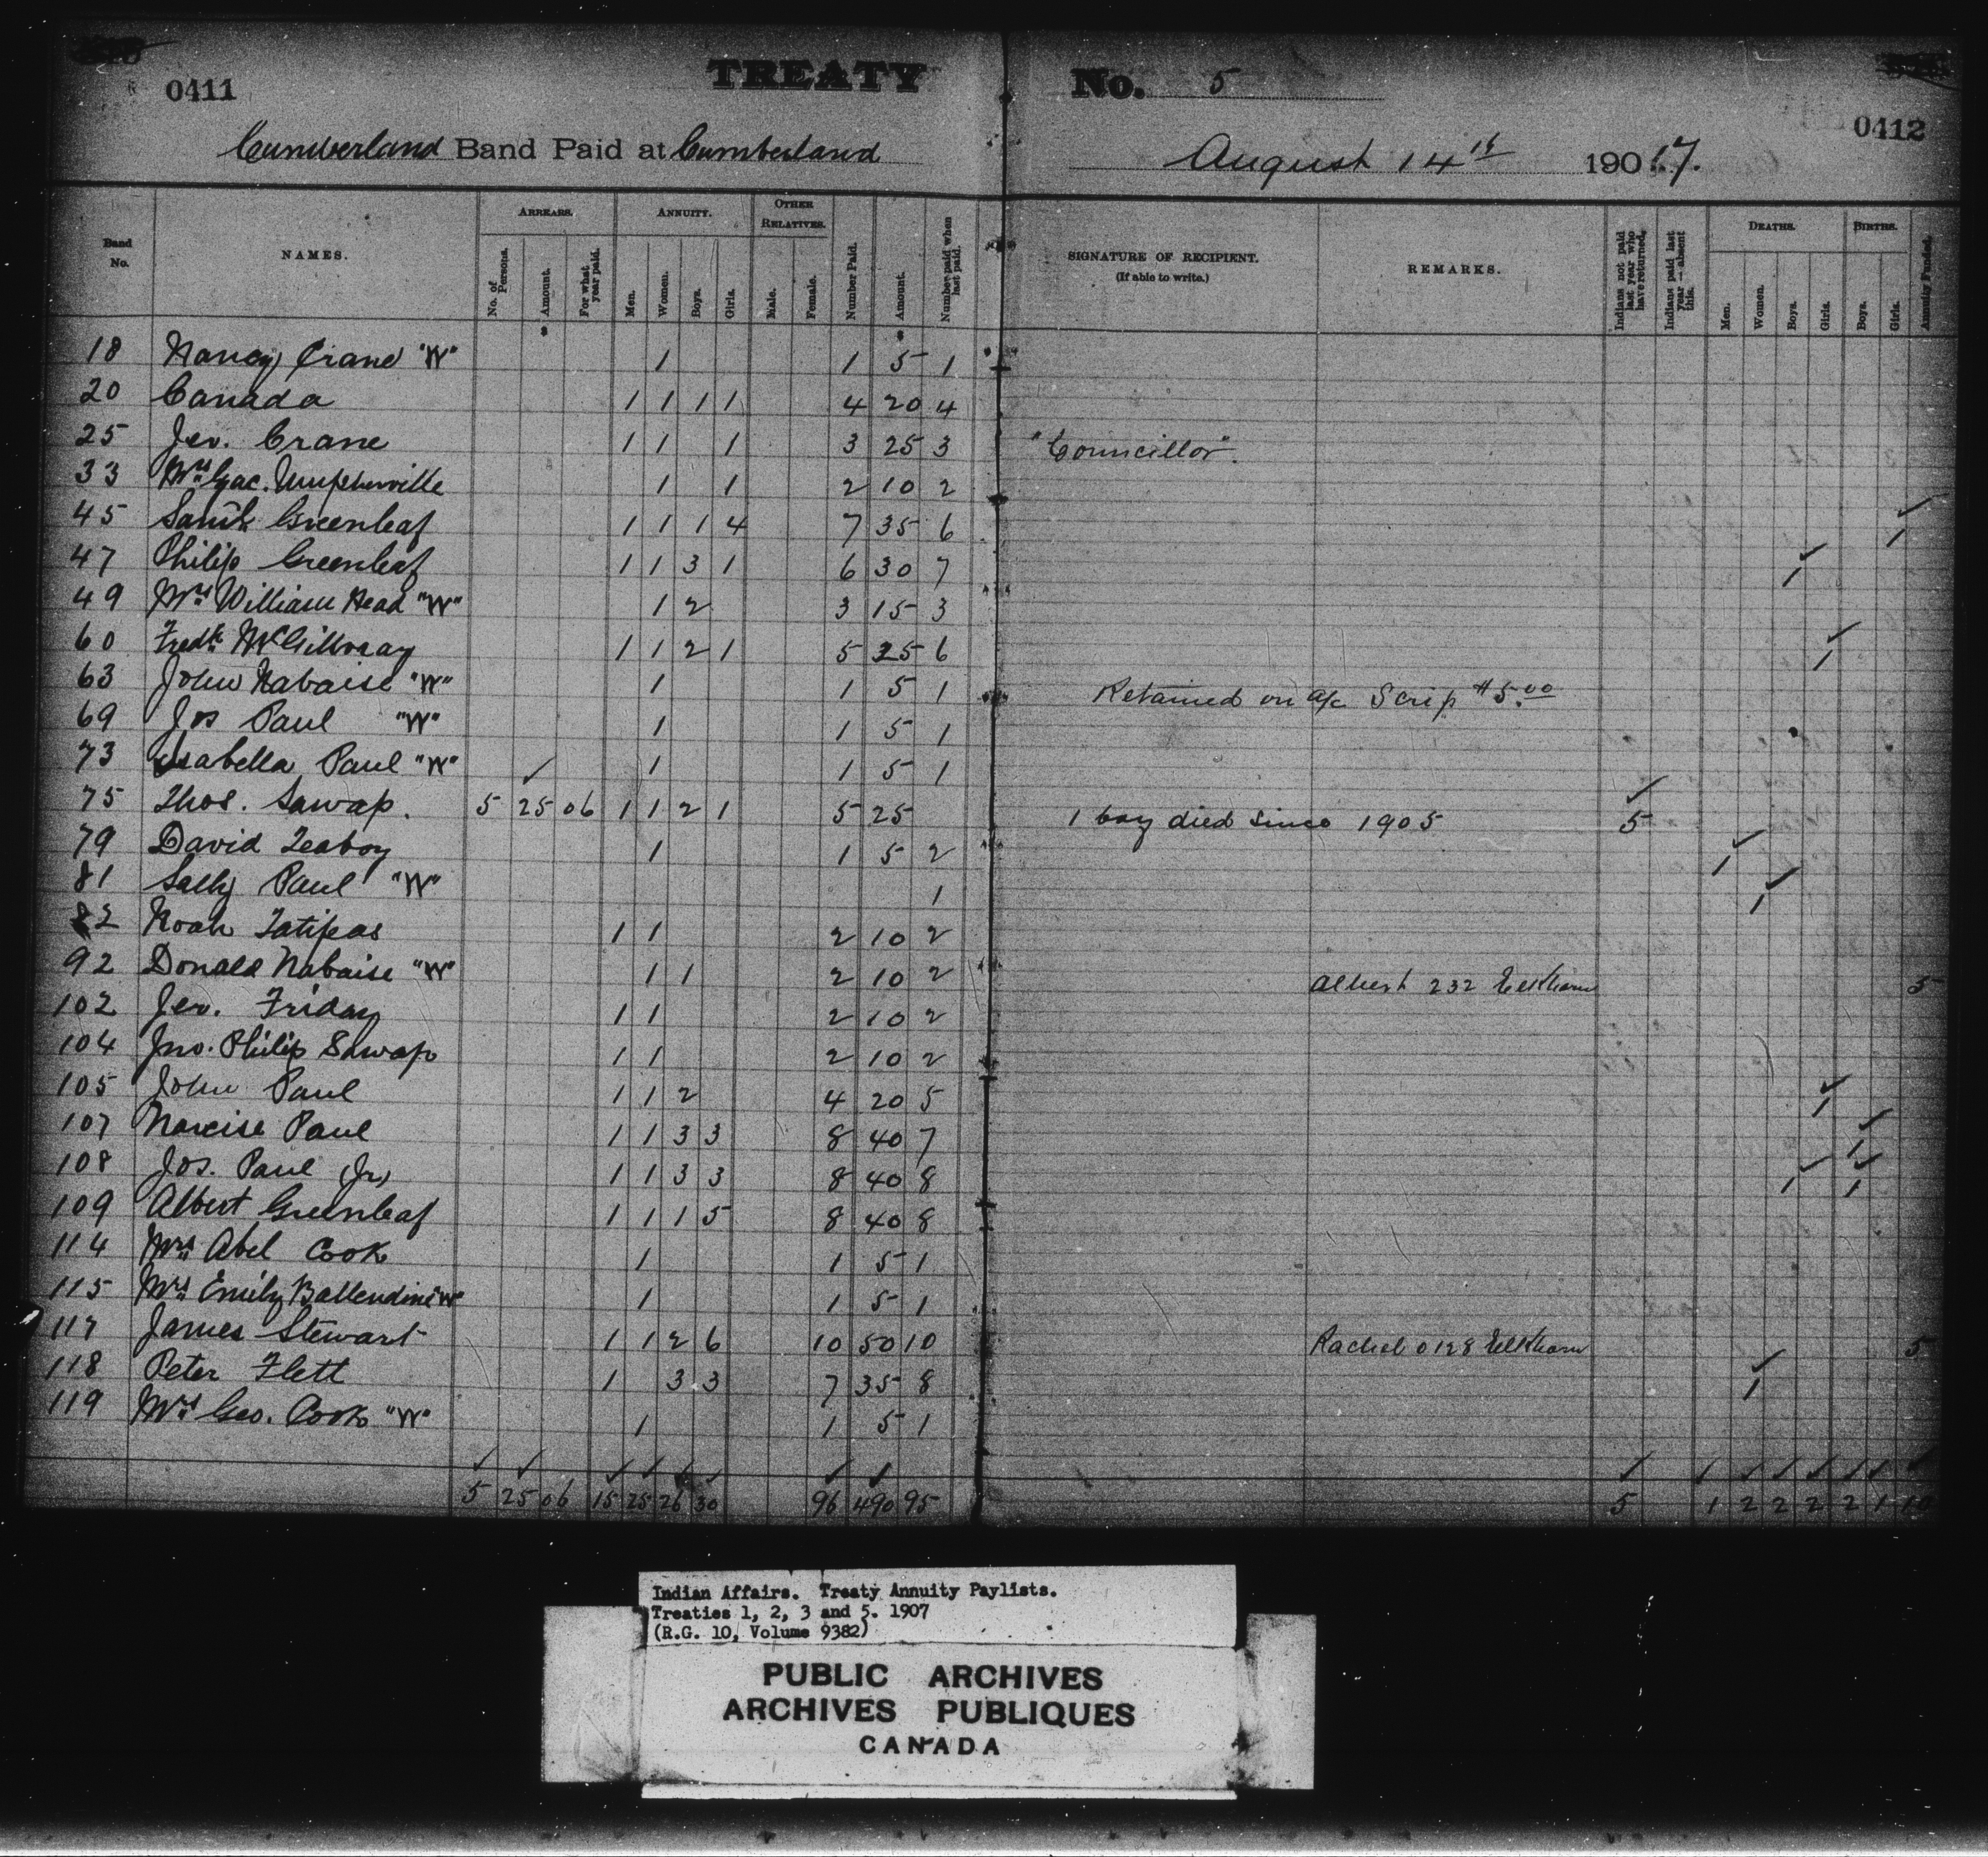 0411
TREATY No. 5
0412
Cumberland Band Paid at Cumberland August 14th 1907.
Band No. NAMES. ARREARS. No. of Persons. Amount. For what year paid. ANNUITY. Men. Women. Boys. Girls. OTHER RELATIVES. Male. Female. Number Paid. Amount. Number paid when last paid. SIGNATURE OF RECIPIENT. (If able to write.) REMARKS. Indians not paid last year who have returned. Indians paid last year — absent this. DEATHS. Men. Women. Boys. Girls. BIRTHS. Boys. Girls. Annuity Funded.
18 Nancy Crane "W" 1 1 5 1
20 Canada 1 1 1 1 4 20 4
25 Jer. Crane 1 1 1 3 25 3 "Councillor".
33 Mrs Jac. Umpherville 1 1 2 10 2
45 Greenleaf 1 1 1 4 7 35 6 1
47 Philip Greenleaf 1 1 3 1 6 30 7 1
49 Mrs William Head "W" 1 2 3 15 3
60 Fredk McGillvray 1 1 2 1 5 25 6 1
63 John Nabaise "W" 1 1 5 1 Retained on a/c Scrip $5.00
69 Jos Paul "W" 1 1 5 1
73 Isabella Paul "W" 1 1 5 1
75 Thos. Sawap. 5 25 06 1 1 2 1 5 25 1 boy died since 1905 5
79 David Teaboy 1 1 5 2 1
81 Sally Paul "W" 1 1
82 Noah Tatipeas 1 1 2 10 2
92 Donald Nabaise "W" 1 1 2 10 2 Albert 232 Elkhorn 5
102 Jer. Friday 1 1 2 10 2
104 Jno. Philip Sawap 1 1 2 10 2
105 John Paul 1 1 2 4 20 5 1
107 Narcise Paul 1 1 3 3 8 40 7 1
108 Jos. Paul (Jr) 1 1 3 3 8 40 8 1 1
109 Albert Greenleaf 1 1 1 5 8 40 8
114 Mrs Abel Cook 1 1 5 1
115 Mrs Emily Ballendine "W" 1 1 5 1
117 James Stewart 1 1 2 6 10 50 10 Rachel 0128 Elkhorn 5
118 Peter Flett 1 3 3 7 35 8 1
119 Mrs Geo. Cook "W" 1 1 5 1
5 25 06 15 25 26 30 96 490 95 5 1 2 2 2 2 1 10
Indian Affairs. Treaty Annuity Paylists.
Treaties 1, 2, 3 and 5. 1907
(R.G. 10, Volume 9382)
PUBLIC ARCHIVES
ARCHIVES PUBLIQUES
CANADA